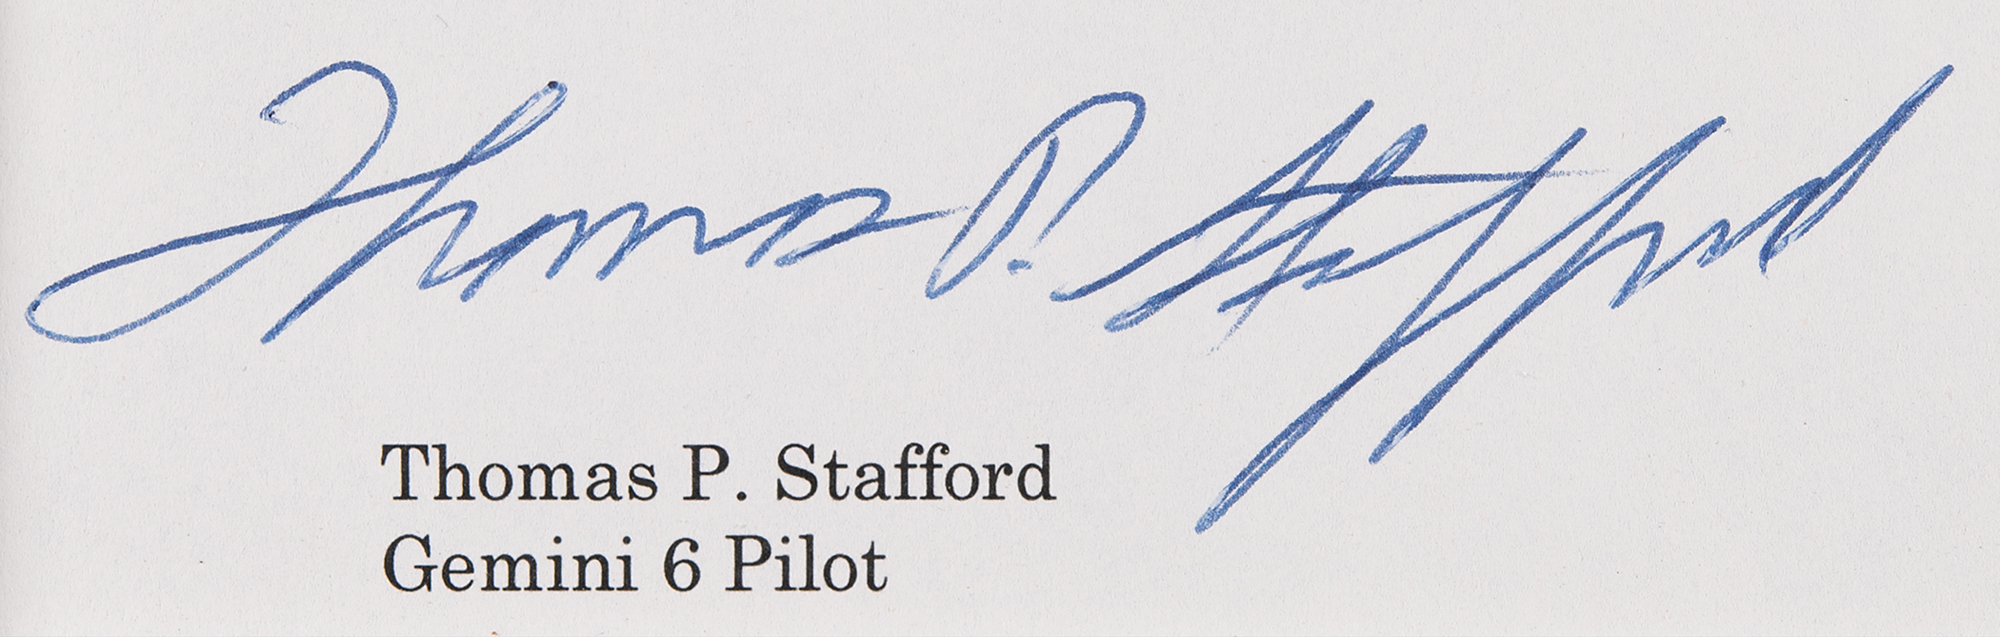 Thomas P. Stafford
Thomas P. Stafford
Gemini 6 Pilot